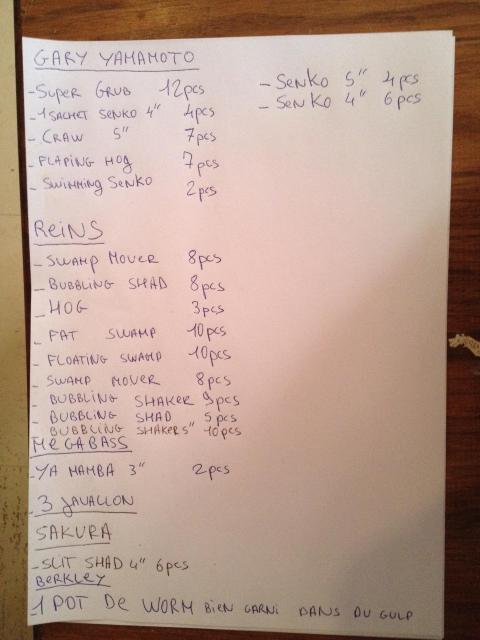 GARY YAMAMOTO
- SUPER GRUB 12pcs
- 1 SACHET SENKO 4" 4pcs
- CRAW 5" 7pcs
- FLAPING HOG 7pcs
- SWIMMING SENKO 2pcs
- SENKO 5" 4pcs
- SENKO 4" 6pcs
REINS
- SWAMP MOVER 8pcs
- BUBBLING SHAD 8pcs
- HOG 3pcs
- FAT SWAMP 10pcs
- FLOATING SWAMP 10pcs
- SWAMP MOVER 8pcs
- BUBBLING SHAKER 9pcs
- BUBBLING SHAD 5pcs
- BUBBLING SHAKERS" 10pcs
MEGABASS
- YA MAMBA 3" 2pcs
- 3 JAVALLON
SAKURA
- SLIT SHAD 4" 6pcs
BERKLEY
- 1 POT DE WORM BIEN GARNI DANS DU GULP